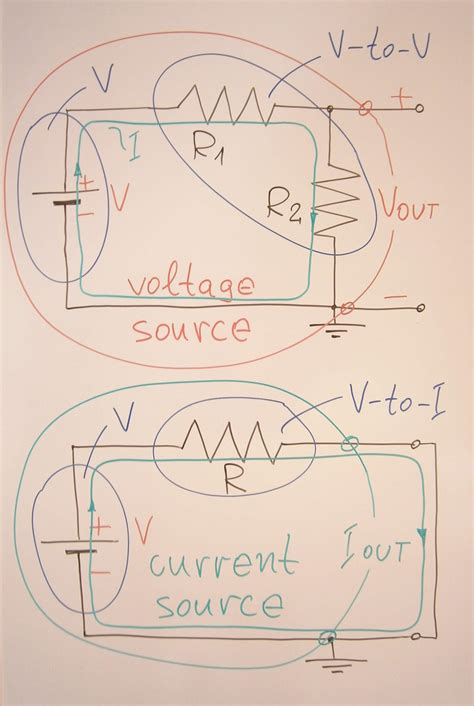 V-to-V
V
+
I
R1
+
V
-
R2
VOUT
voltage
source
-
V-to-I
V
R
+
V
-
IOUT
current
source